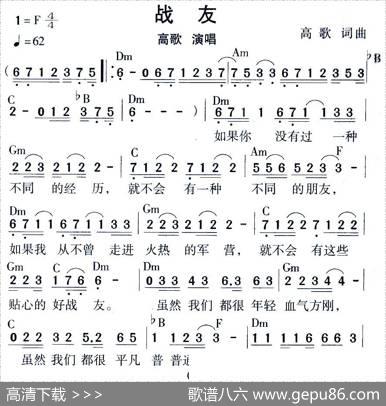 战友
1=F 4/4
♩=62
高歌 演唱
高歌 词曲
Dm Am ♭B
(6 7 1 2 3 7 5) 6 - 0 6 7 1 1 2 3 7 | 7 5 3 3 6 7 1 2 3 7 5 3
C ♭B Dm Dm
2 - 0 1 2 3 7 5 | 6 - - - ) | 6 7 1 6 7 1 1 3 3
如果你 没有过 一种
Gm C Am F
2 2 3 2 1 2 - | 7 1 2 2 7 1 2 - | 5 5 6 5 2 3 - |
不同 的经 历, 就不会 有一种 不同 的朋友,
Dm Gm C
6 7 1 1 6 7 1 1 3 3 | 2 2 3 2 1 2 - | 7 1 2 2 7 1 2 2
如果我 从不曾 走进 火热 的军 营, 就不会 有这些
Gm C Dm Dm Gm
2 2 3 1 7 6 6 - | 0 3 3 4 3 6 . 3 6 3 | 2 2 3 4 4 -
贴心的 好战 友。 虽然 我们 都很 年轻 血气方刚,
C ♭B F Dm
0 2 2 3 2 5 . 2 6 5 | 3 3 - | 1 1 1 1 6 6 6 3
虽然 我们 都很 平凡 普 普
高清下载 >>>
歌谱八六 www.gepu86.com